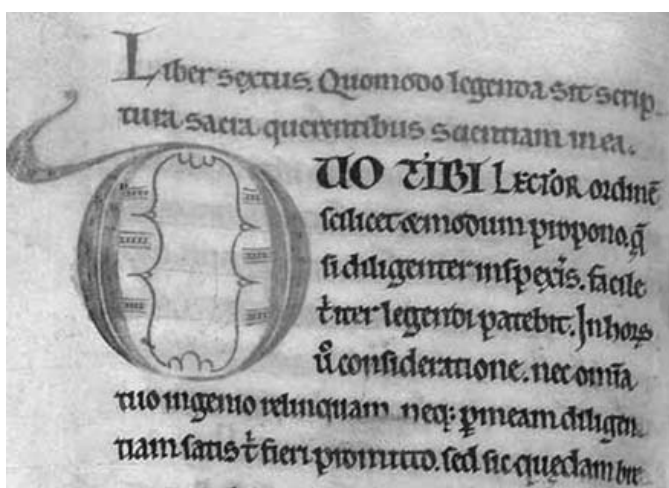 Liber sęxtus. Quomodo legenda sit scrip
tura sacra querentibus scientiam in ea.
DUO TIBI LECTOR ordinē
scilicet & modum propono. q̄
si diligenter inspęxis. facile
t̄ iter legendi patebit. In hoꝝ
ů consideratione. nec omīa
tuo ingenio relinquam neq; ꝑ meam diligen
tiam satis t̄ fieri promitto. sed sic quędam bre